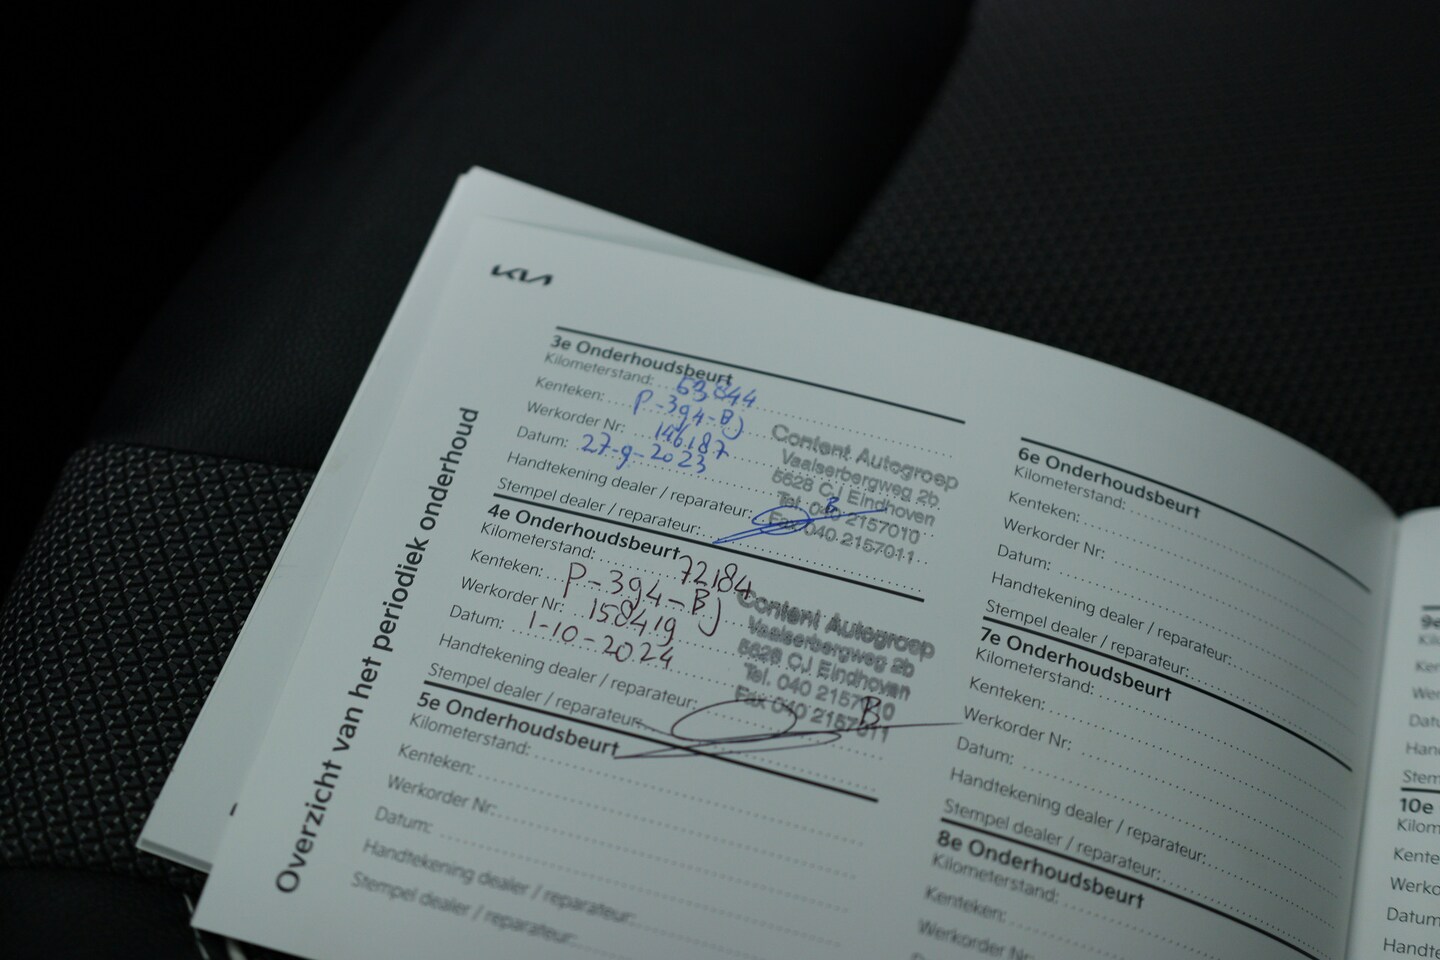 KIA
Overzicht van het periodiek onderhoud
3e Onderhoudsbeurt
Kilometerstand: 53,844
Kenteken: P-394-BJ
Werkorder Nr: 146187
Datum: 27-9-2023
Handtekening dealer / reparateur:
Stempel dealer / reparateur:
Content Autogroep
Vaalserbergweg 2b
5628 CJ Eindhoven
Tel. 040 2157010
Fax 040 2157011
4e Onderhoudsbeurt
Kilometerstand: 72184
Kenteken: P-394-BJ
Werkorder Nr: 158419
Datum: 1-10-2024
Handtekening dealer / reparateur:
Stempel dealer / reparateur:
Content Autogroep
Vaalserbergweg 2b
5628 CJ Eindhoven
Tel. 040 2157010
Fax 040 2157011
5e Onderhoudsbeurt
Kilometerstand:
Kenteken:
Werkorder Nr:
Datum:
Handtekening dealer / reparateur:
Stempel dealer / reparateur:
6e Onderhoudsbeurt
Kilometerstand:
Kenteken:
Werkorder Nr:
Datum:
Handtekening dealer / reparateur:
Stempel dealer / reparateur:
7e Onderhoudsbeurt
Kilometerstand:
Kenteken:
Werkorder Nr:
Datum:
Handtekening dealer / reparateur:
Stempel dealer / reparateur:
8e Onderhoudsbeurt
Kilometerstand:
Kenteken:
Werkorder Nr:
9e
Kil
Ken
Wer
Datu
Han
Stem
10e
Kilom
Kente
Werko
Datum
Handte